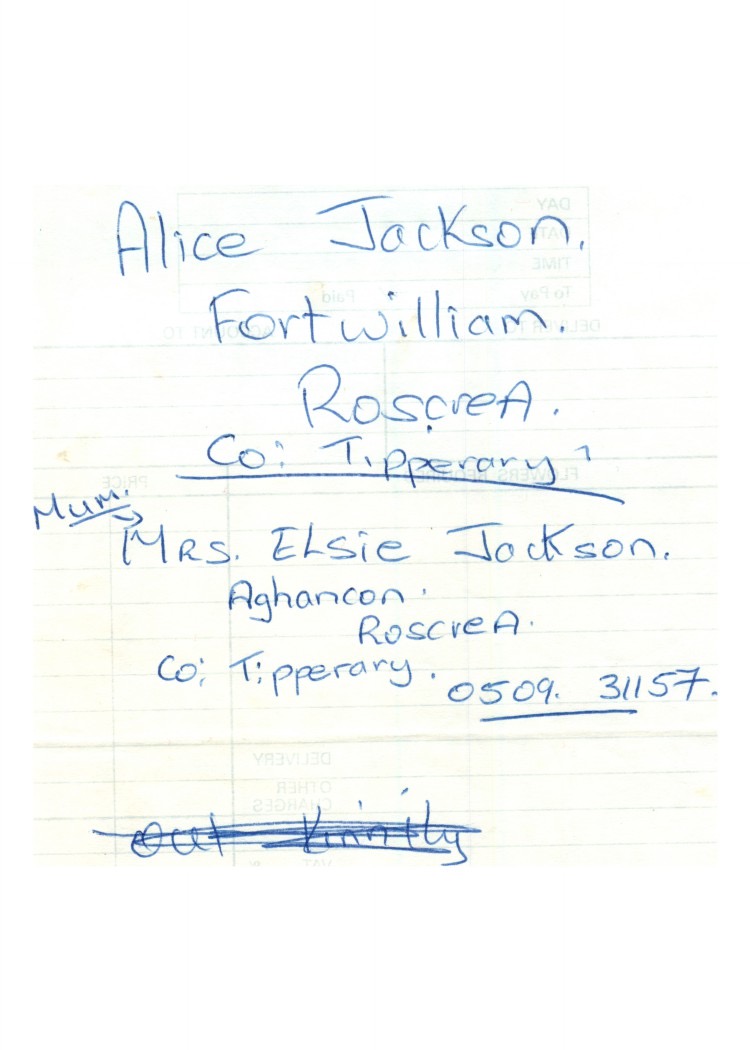 Alice Jackson.
Fortwilliam.
RoscreA.
Co: Tipperary
Mum.
MRS. ELsie Jackson.
Aghancon.
RoscreA.
Co: Tipperary.
0509. 31157.
out Kinnity
DAY
DATE
TIME
To Pay Paid
DELIVER TO ACCOUNT TO
FLOWERS REQUIRED PRICE
DELIVERY
OTHER
CHARGES
VAT